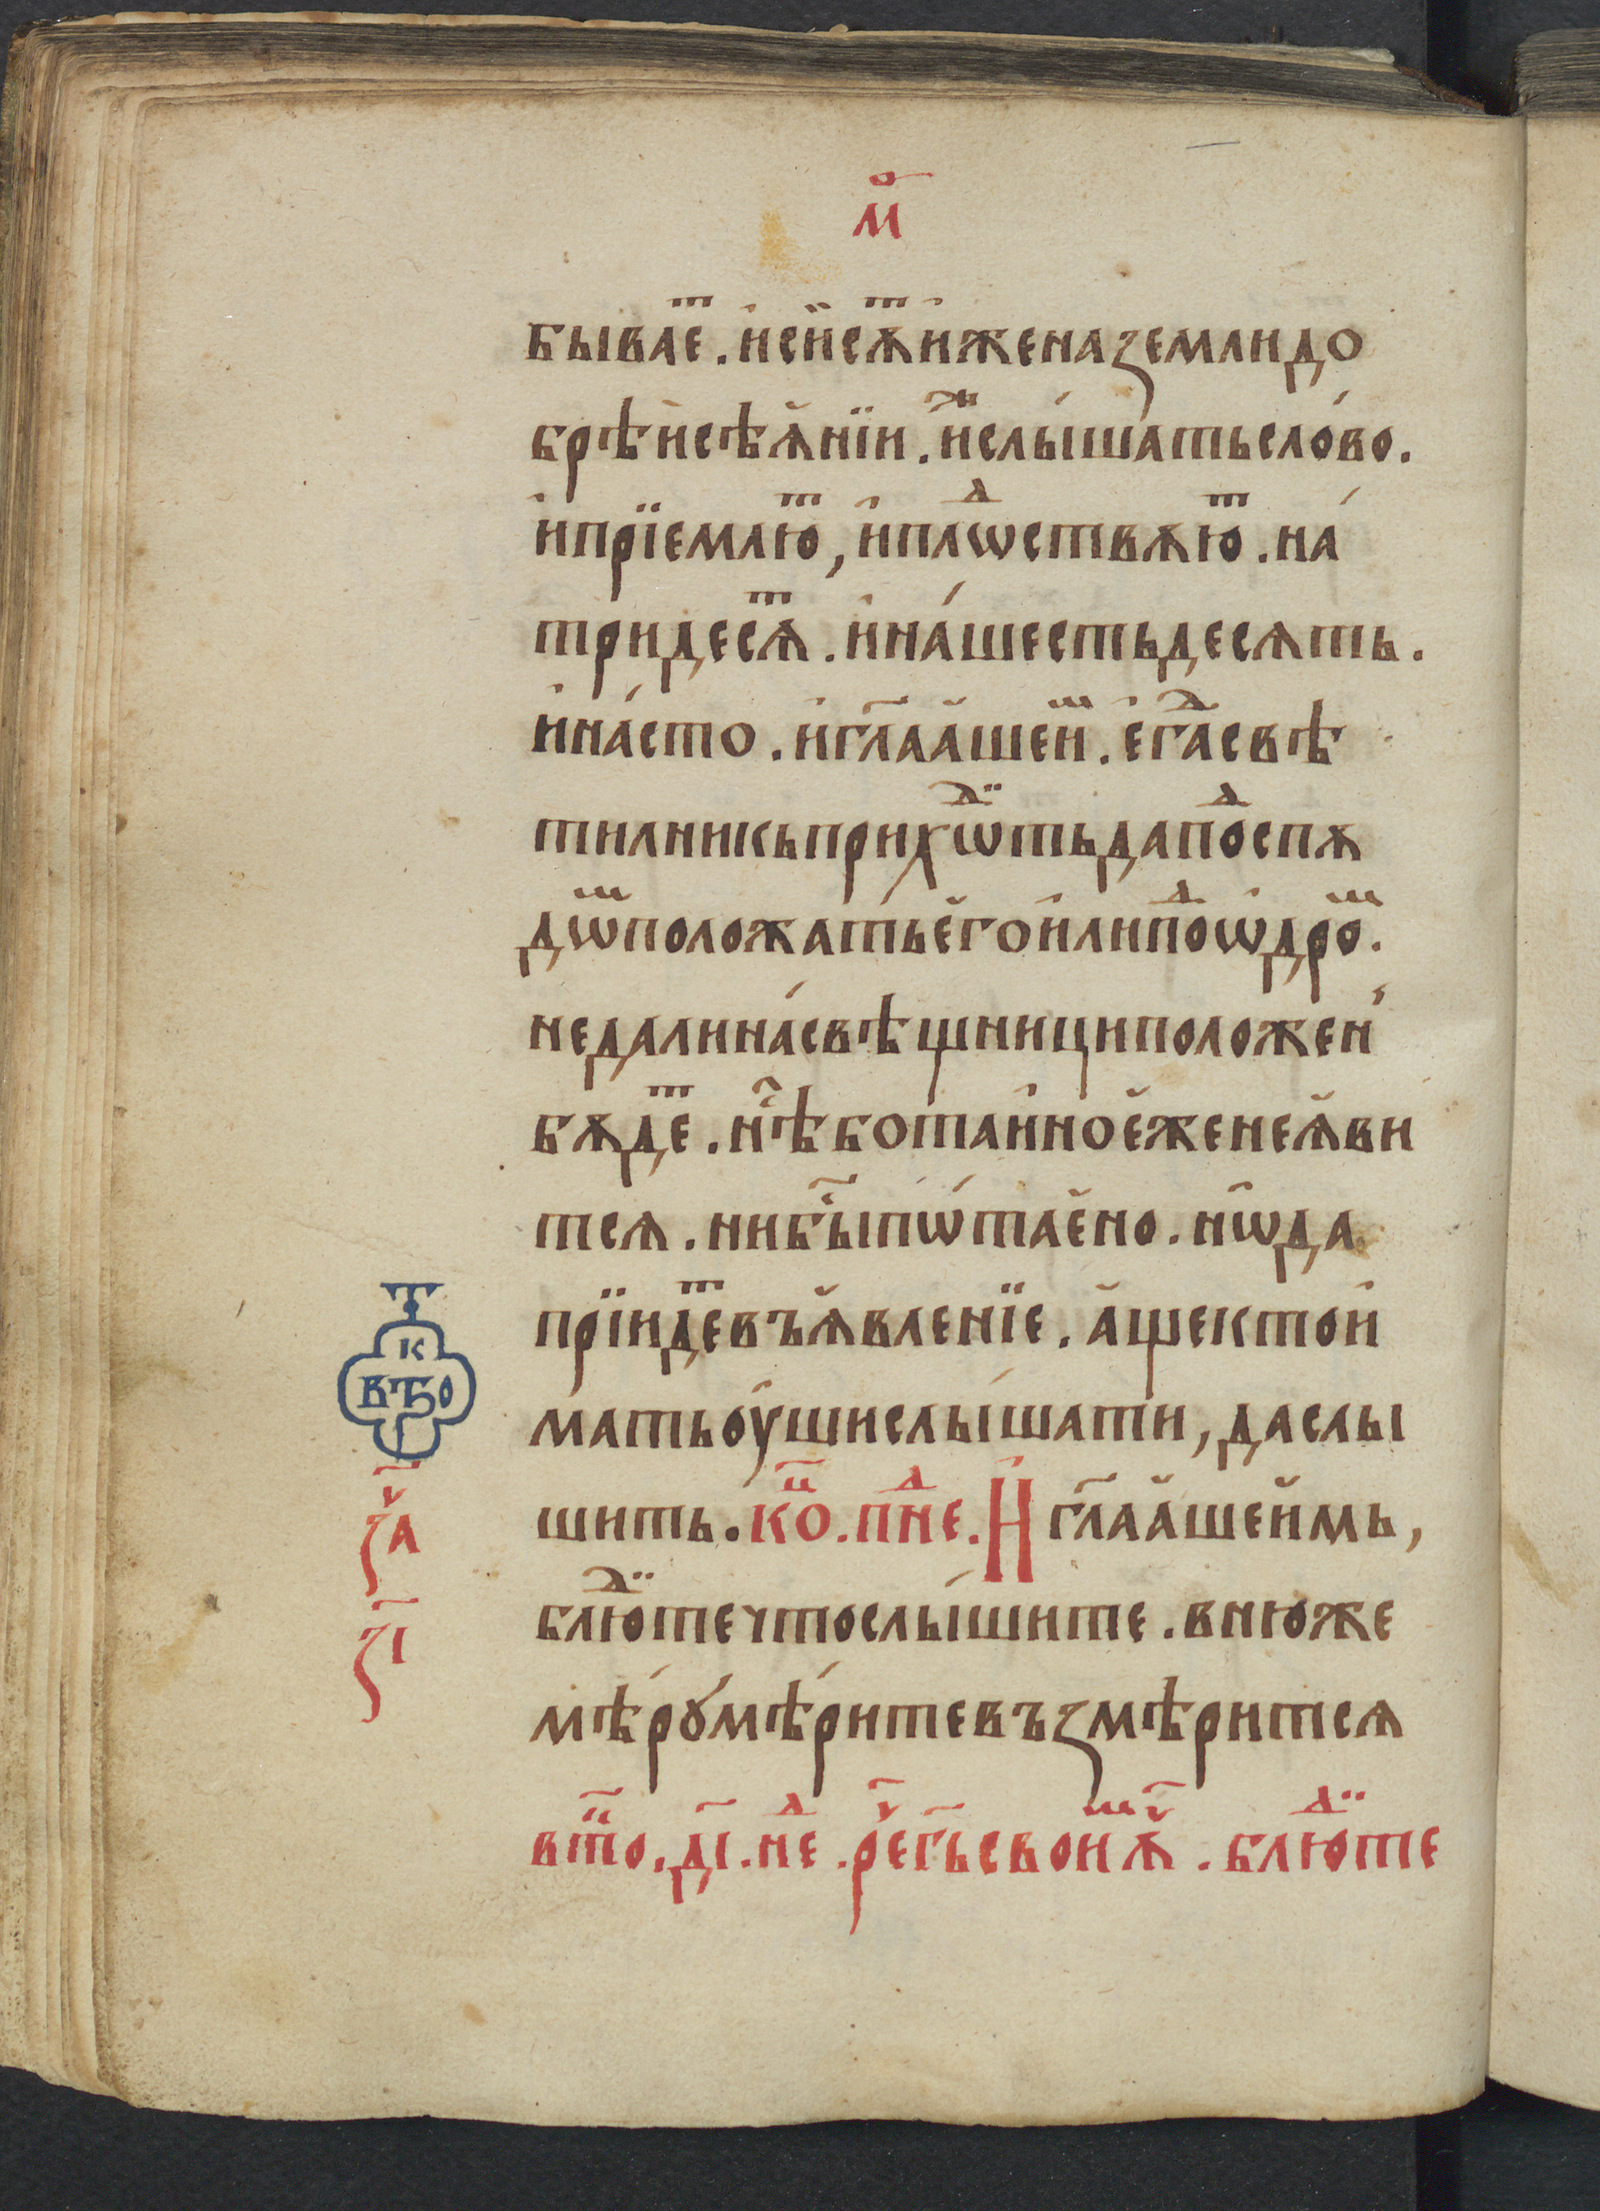 мⷪ
бываеⷮ . и҆сиⷭ҇сѫⷮи҆женаꙁемлидо
брѣи҆сѣꙗ҆нїи . и҆жⷤеслы́шатьсло́во .
и҆прїемлюⷮ , и҆плⷣѡствѧюⷮ . на́
тридесѧⷮ . и҆на́шестьдесѧть .
и҆на́сто . и҆гл҃аа҆шеиⷨ . е҆гдⷣасвѣ
тилникьприхѡⷣтьдапоⷣспѫ
дѡⷨположатье҆гои҆липоⷣѡ҆дроⷨ .
недалина́свѣщнициположен́
бѫдеⷮ . нѣⷭ҇ботаи҆ноеженеꙗ҆ви
тсѧ . нибыⷭ҇пѡ́тае҆но . нѡ҆да
прїидеⷮвъꙗ҆вленїе . а҆щектои҆
матьоу҆шислы́шати , даслы
шить . коⷰ . пнеⷣ . И҆гл҃аа҆шеи҆мь ,
блюⷣтечтослы́шите . внюже
мѣ́рꙋмѣ́ритевъꙁмѣритсѧ
втоⷬ . дı҃ . неⷣ . реⷱ҇гь҃своиⷨꙋⷱ҇ . блюⷣте
к
вѣо
г
ꙁаⷱ҇
ꙁı҃